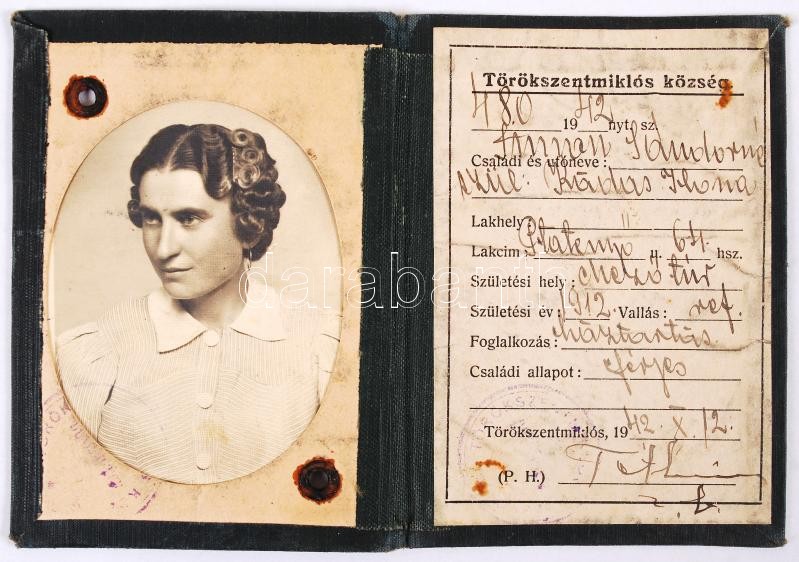 Törökszentmiklós község
480 1942 nyt. sz.
Családi és utóneve: Sándorné
szül: Kádas Ilona
Lakhely: "
Lakcim: 64. hsz.
Születési hely: Mezőtúr
Születési év: 1912. Vallás: ref.
Foglalkozás: háztartás
Családi állapot: férjes
Törökszentmiklós, 1942. X. 12.
(P. H.)
darabanth